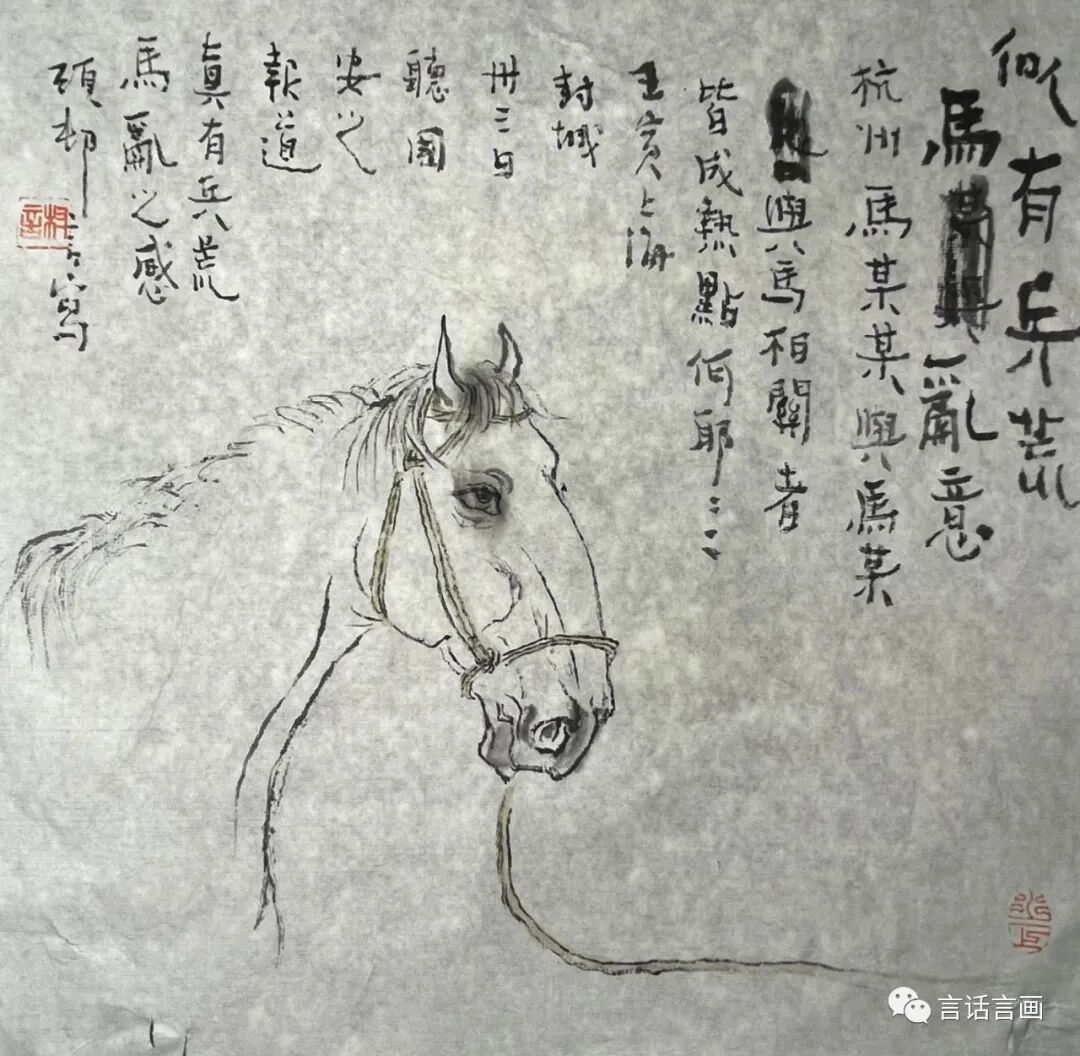 似有兵荒
馬亂意
杭州馬某某與馬某
與馬相關者
皆成熱點何耶
壬寅上海
封城
卅三日
聽國
安之
報道
真有兵荒
馬亂之感
寫
言话言画